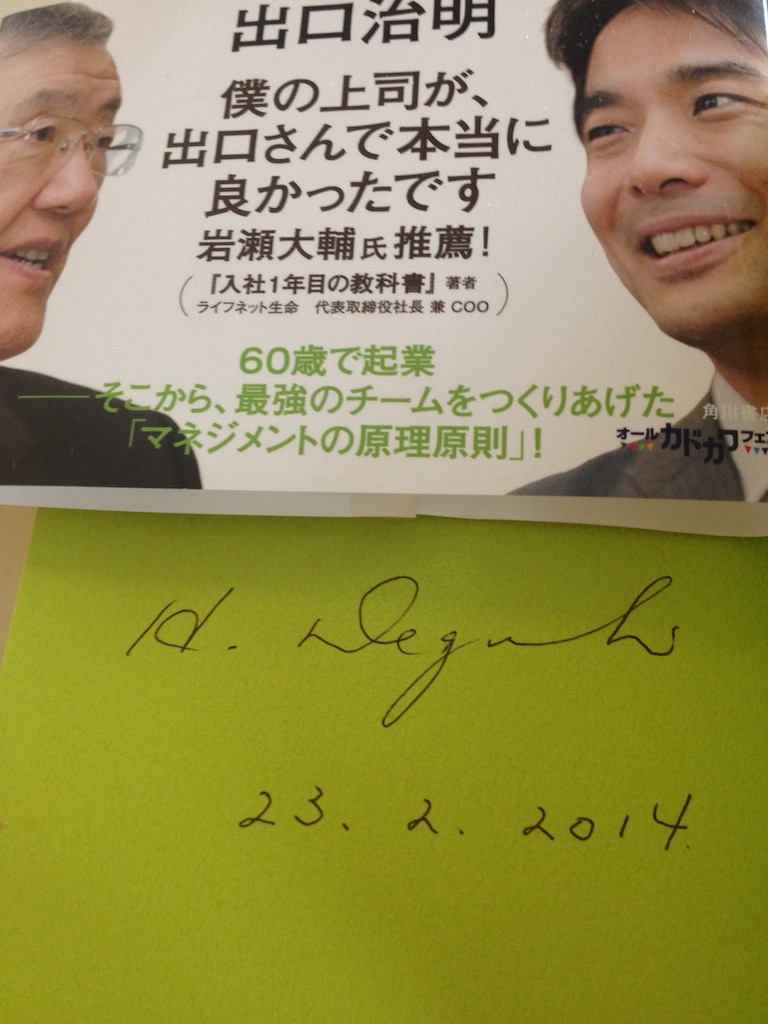 出口治明
僕の上司が、
出口さんで本当に
良かったです
岩瀬大輔氏推薦!
(『入社1年目の教科書』著者
ライフネット生命 代表取締役社長 兼 COO)
60歳で起業
――そこから、最強のチームをつくりあげた
「マネジメントの原理原則」!
角川書店
オールカドカワフェ
H. Deguchi
23. 2. 2014.